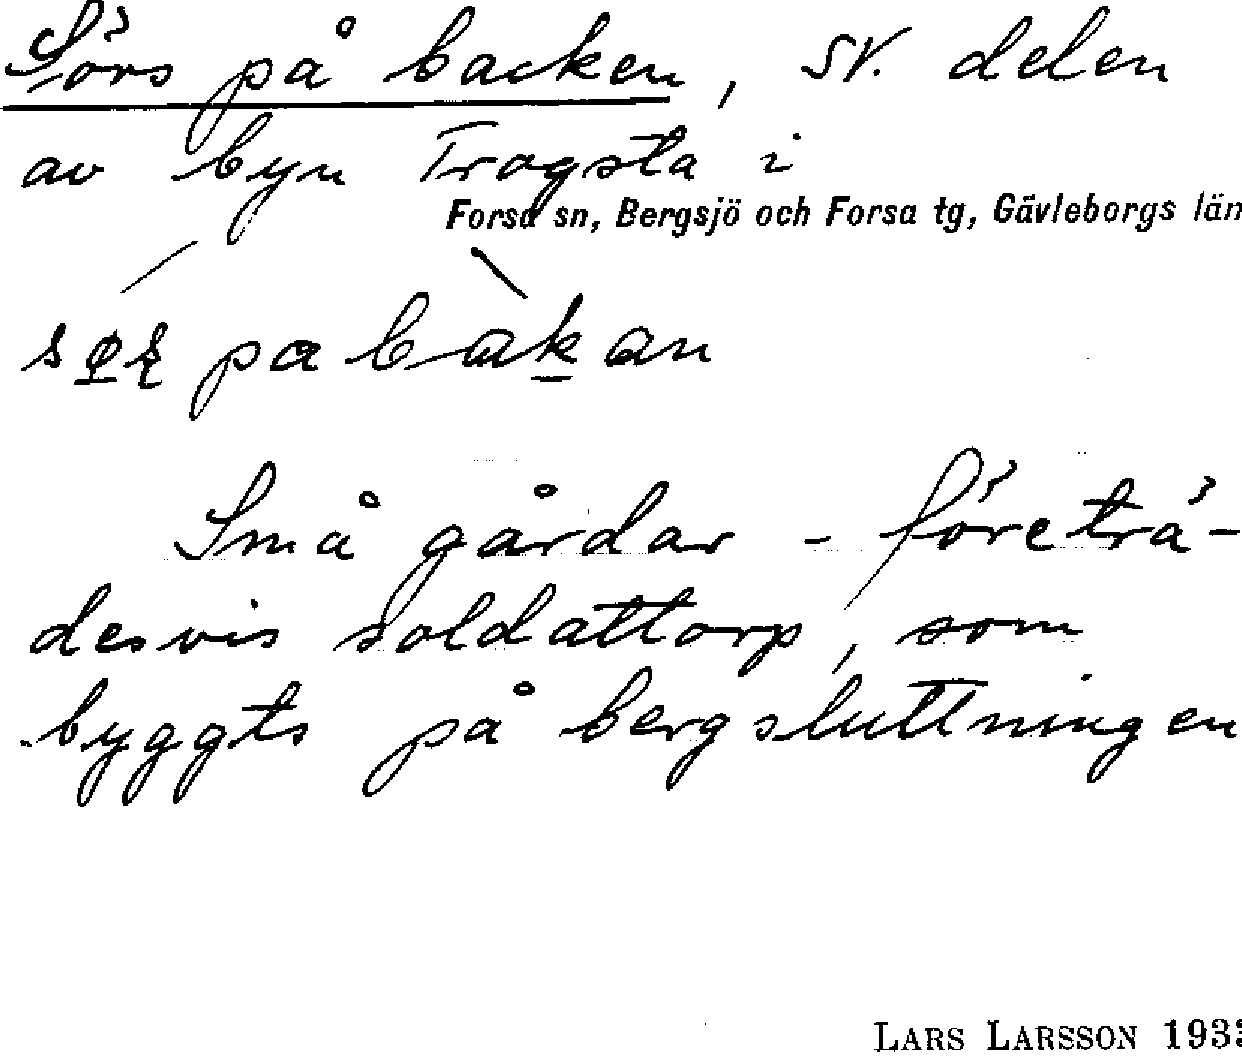 Sörs på backen, SV. delen
av byn Trogsta i
Forsa sn, Bergsjö och Forsa tg, Gävleborgs län
pa bakan
Små gårdar - företrä-
desvis soldattorp, som
byggts på bergsluttningen
LARS LARSSON 193